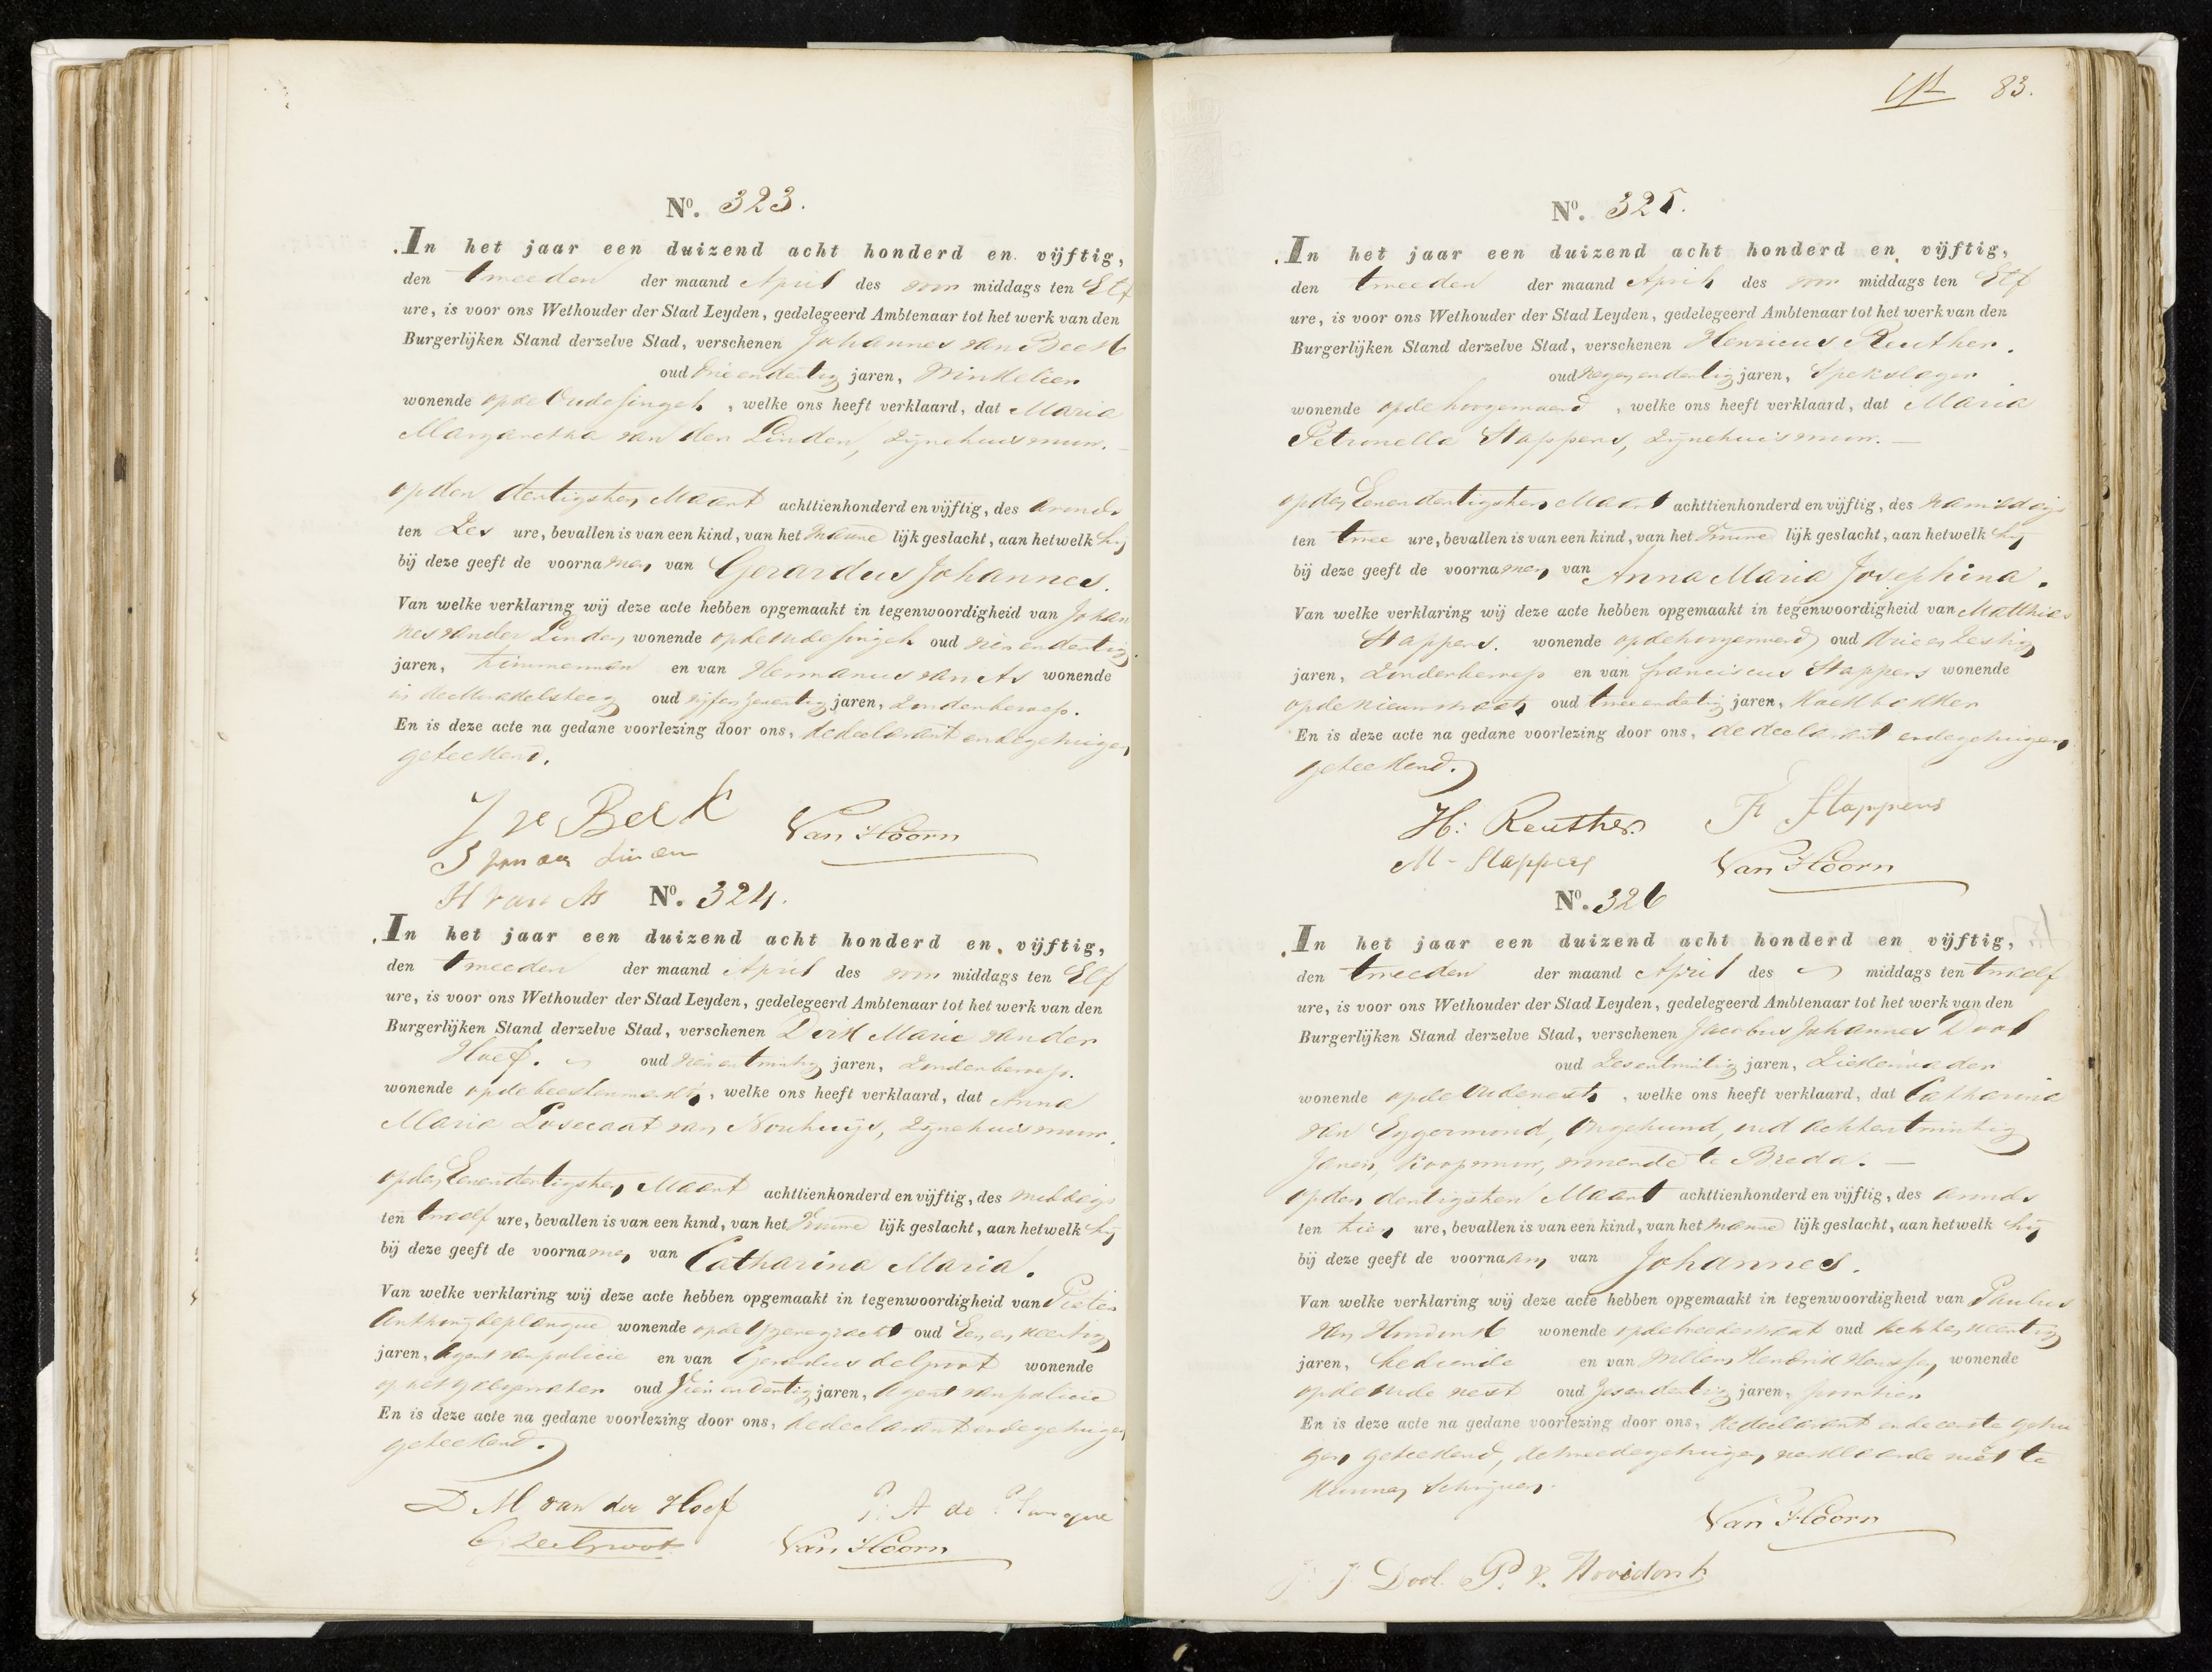 No. 323.
In het jaar een duizend acht honderd en vijftig,
den tweeden der maand April des voor middags ten Elf
ure, is voor ons Wethouder der Stad Leyden, gedelegeerd Ambtenaar tot het werk van den
Burgerlijken Stand derzelve Stad, verschenen Johannes van Beek
oud drieendertig jaren, Winkelier
wonende op de Oudesingel, welke ons heeft verklaard, dat Maria
Margaretha van der Linden, zijnehuisvrouw.
op den dertigsten Maart achttienhonderd en vijftig, des avonds
ten Zes ure, bevallen is van een kind, van het manne lijk geslacht, aan hetwelk hij
bij deze geeft de voornamen van Gerardus Johannes.
Van welke verklaring wij deze acte hebben opgemaakt in tegenwoordigheid van Johan
nes van der Linden, wonende op de oudesingel oud vierendertig
jaren, timmerman en van Hermanus van As wonende
in de oud vijfenzeventig jaren, zonderberoep.
En is deze acte na gedane voorlezing door ons, de declarant en de getuigen
geteekend.
J v Beek Van Hoorn
H van As
No. 324.
In het jaar een duizend acht honderd en vijftig,
den tweeden der maand April des voor middags ten Elf
ure, is voor ons Wethouder der Stad Leyden, gedelegeerd Ambtenaar tot het werk van den
Burgerlijken Stand derzelve Stad, verschenen Dirk Marie van der
Hoef. oud jaren, zonderberoep.
wonende op de beestenmarkt, welke ons heeft verklaard, dat Anna
Maria Losecaat van Nouhuijs, zijnehuisvrouw.
op den Eenendertigsten Maart achttienhonderd en vijftig, des middags
ten twaalf ure, bevallen is van een kind, van het Vrouwe lijk geslacht, aan hetwelk hij
bij deze geeft de voornamen van Catharina Maria.
Van welke verklaring wij deze acte hebben opgemaakt in tegenwoordigheid van Pieter
Anthonij deplanque wonende op de oud Een en veertig
jaren, Agent van policie en van Gerardus deGroot wonende
op het oud vierendertig jaren, Agent van policie
En is deze acte na gedane voorlezing door ons, de declarant en de getuigen
geteekend.
D M van der Hoef P. A de Planque
G de Groot Van Hoorn
83.
No. 325.
In het jaar een duizend acht honderd en vijftig,
den tweeden der maand April des voor middags ten Elf
ure, is voor ons Wethouder der Stad Leyden, gedelegeerd Ambtenaar tot het werk van den
Burgerlijken Stand derzelve Stad, verschenen Henricus Reuther.
oud negenendertig jaren, Spekslager
wonende op de hoogewoerd, welke ons heeft verklaard, dat Maria
Petronella Stappers, zijnehuisvrouw.
op den Eenendertigsten Maart achttienhonderd en vijftig, des namiddags
ten twee ure, bevallen is van een kind, van het Vrouwe lijk geslacht, aan hetwelk hij
bij deze geeft de voornamen van Anna Maria Josephina.
Van welke verklaring wij deze acte hebben opgemaakt in tegenwoordigheid van Matthias
Stappers. wonende op de hoogewoerd oud drie en Zestig
jaren, Zonderberoep en van franciscus Stappers wonende
op de nieuwstraat, oud tweeendertig jaren, Koekbakker
En is deze acte na gedane voorlezing door ons, de declarant en de getuigen
geteekend.
H: Reuther F Stappers
M - Stappers Van Hoorn
No. 326
In het jaar een duizend acht honderd en vijftig,
den tweeden der maand April des middags ten twaalf
ure, is voor ons Wethouder der Stad Leyden, gedelegeerd Ambtenaar tot het werk van den
Burgerlijken Stand derzelve Stad, verschenen Jacobus Johannes Dool
oud Zesentwintig jaren, Ziekenvader
wonende op de Oudevest, welke ons heeft verklaard, dat Catharina
van Eggermond, Ongehuwd, oud achtentwintig
jaren, Koopvrouw, wonende te Breda.
op den dertigsten Maart achttienhonderd en vijftig, des avonds
ten tien ure, bevallen is van een kind, van het manne lijk geslacht, aan hetwelk hij
bij deze geeft de voornaam van Johannes.
Van welke verklaring wij deze acte hebben opgemaakt in tegenwoordigheid van Paulus
van wonende op de breedestraat oud Acht en veertig
jaren, bediende en van Willem Hendrik wonende
op de oude vest oud Zesendertig jaren, portier
En is deze acte na gedane voorlezing door ons, de declarant en de eerste getui
gen geteekend, de tweede getuigen verklaarde niet te
kunnen Schrijven.
Van Hoorn
J. J. Dool. P. V.